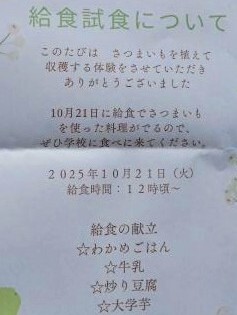 給食試食について
このたびは　さつまいもを植えて
収穫する体験をさせていただき
ありがとうございました
10月21日に給食でさつまいも
を使った料理がでるので、
ぜひ学校に食べに来てください。
2025年10月21日（火）
給食時間：12時頃～
給食の献立
☆わかめごはん
☆牛乳
☆炒り豆腐
☆大学芋